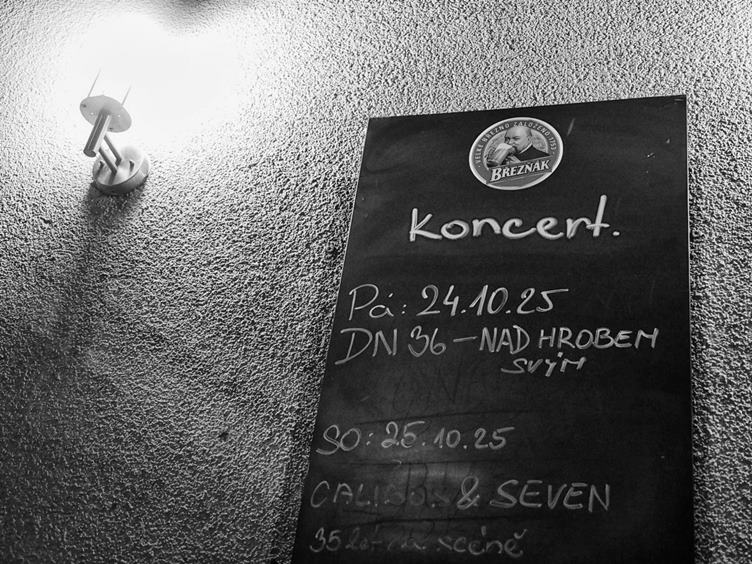 VELKÉ BŘEZNO ZALOŽENO 1753
BŘEZŇÁK
Koncert.
Pá: 24.10.25
DN 36 – NAD HROBEM
SVÝM
SO: 25.10.25
& SEVEN
35 let na scéně